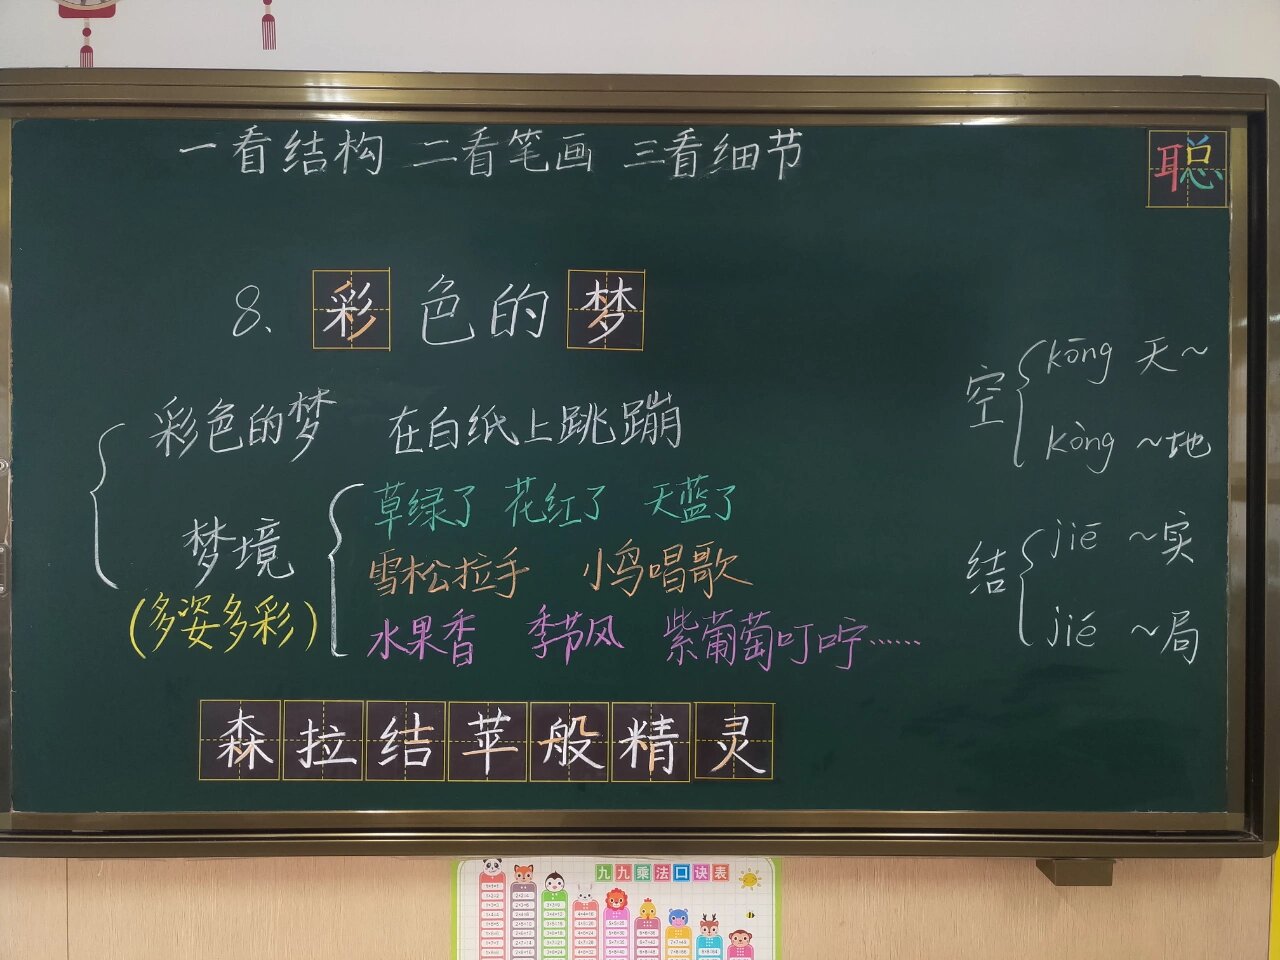 一看结构 二看笔画 三看细节
聪
8、彩色的梦
彩色的梦 在白纸上跳蹦
梦境
(多姿多彩)
草绿了 花红了 天蓝了
雪松拉手 小鸟唱歌
水果香 季节风 紫葡萄叮咛……
空
kōng 天~
kòng ~地
结
jiē ~实
jié ~局
森拉结苹般精灵
九九乘法口诀表